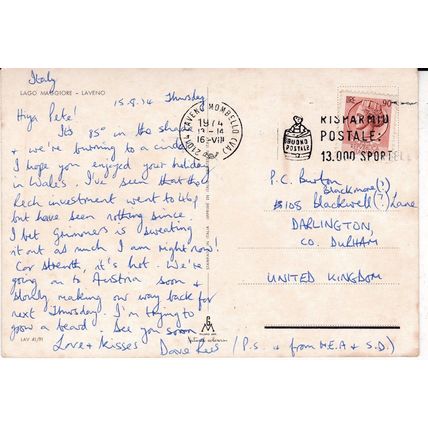 Italy
LAGO MAGGIORE - LAVENO
15.8.74 Thursday
Hiya Pete!
It's 85° in the shade
& we're burning to a cinder.
I hope you enjoyed your holiday
in Wales. I've seen that the
Rech investment went to
but have seen nothing since.
I bet Grimmers is sweating
it out as much I am right now!
Cor strewth, it's hot. We're
going on to Austria soon &
slowly making our way back for
next Thursday. I'm trying to
grow a beard. See you soon,
Love & kisses
Dave
(P.S. & from M.E.A & S.D.)
LAV 41/91
21014 LAVENO MOMBELLO (VA)
1974
13-14
16-VIII
BUONO
POSTALE
RISPARMIO
POSTALE:
13.000 SPORTELLI
90
P.C. Burton
Blackmore(?)
108 Blackwell(?) Lane
DARLINGTON,
CO. DURHAM
UNITED KINGDOM